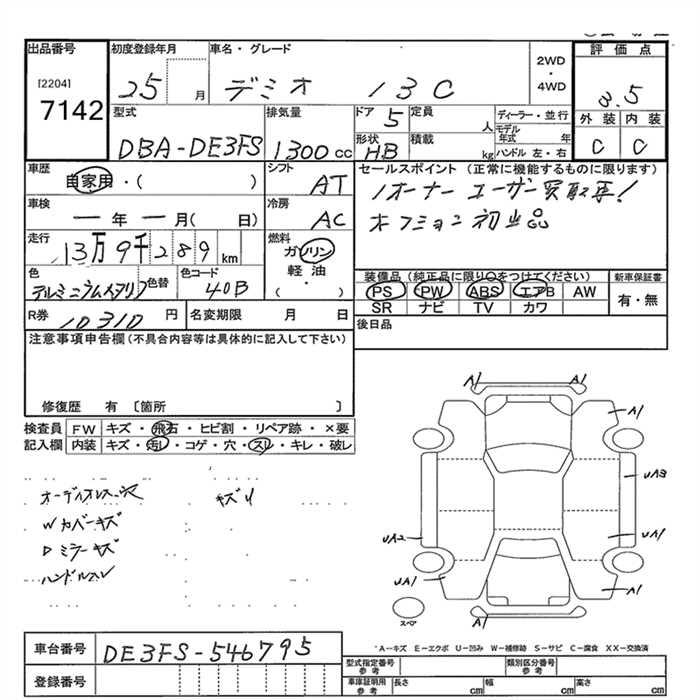 出品番号 初度登録年月 車名・グレード 評価点
[2204]
7142
25 月 デミオ 13C 2WD・4WD 3.5
型式 排気量 ドア 5 定員 人 ディーラー・並行 外装 内装
DBA-DE3FS 1300cc 形状 HB 積載 kg モデル年式 年 ハンドル 左・右 C C
車歴 自家用・( ) シフト AT セールスポイント (正常に機能するものに限ります)
1オーナー ユーザー買取車!
車検 ー年ー月( 日) 冷房 AC
オプション 初出品
走行 13万9千289km 燃料 ガソリン 軽油 ・ ( )
装備品 (純正品に限り○をつけてください) 新車保証書
色 アルミニウムメタリック 色替 色コード 40B
PS PW ABS エアB AW 有・無
SR ナビ TV カワ
R券 10310円 名変期限 月 日 後日品
注意事項申告欄 (不具合内容等は具体的に記入して下さい)
修復歴 有 [箇所 ]
検査員 FW キズ・飛石・ヒビ割・リペア跡・×要
記入欄 内装 キズ・汚レ・コゲ・穴・スレ・キレ・破レ
オーディオレス穴 キズリ
Wカバーキズ
Dミラーキズ
ハンドルスレ
A1 A1
A1
UA3
UA2 UA1
UA1 A1
A1
スペア
A-キズ E-エクボ U-凹み W-補修跡 S-サビ C-腐食 XX-交換済
車台番号 DE3FS-546795
登録番号
型式指定番号 参考 類別区分番号 参考
車庫証明用 参考 長さ cm 幅 cm 高さ cm